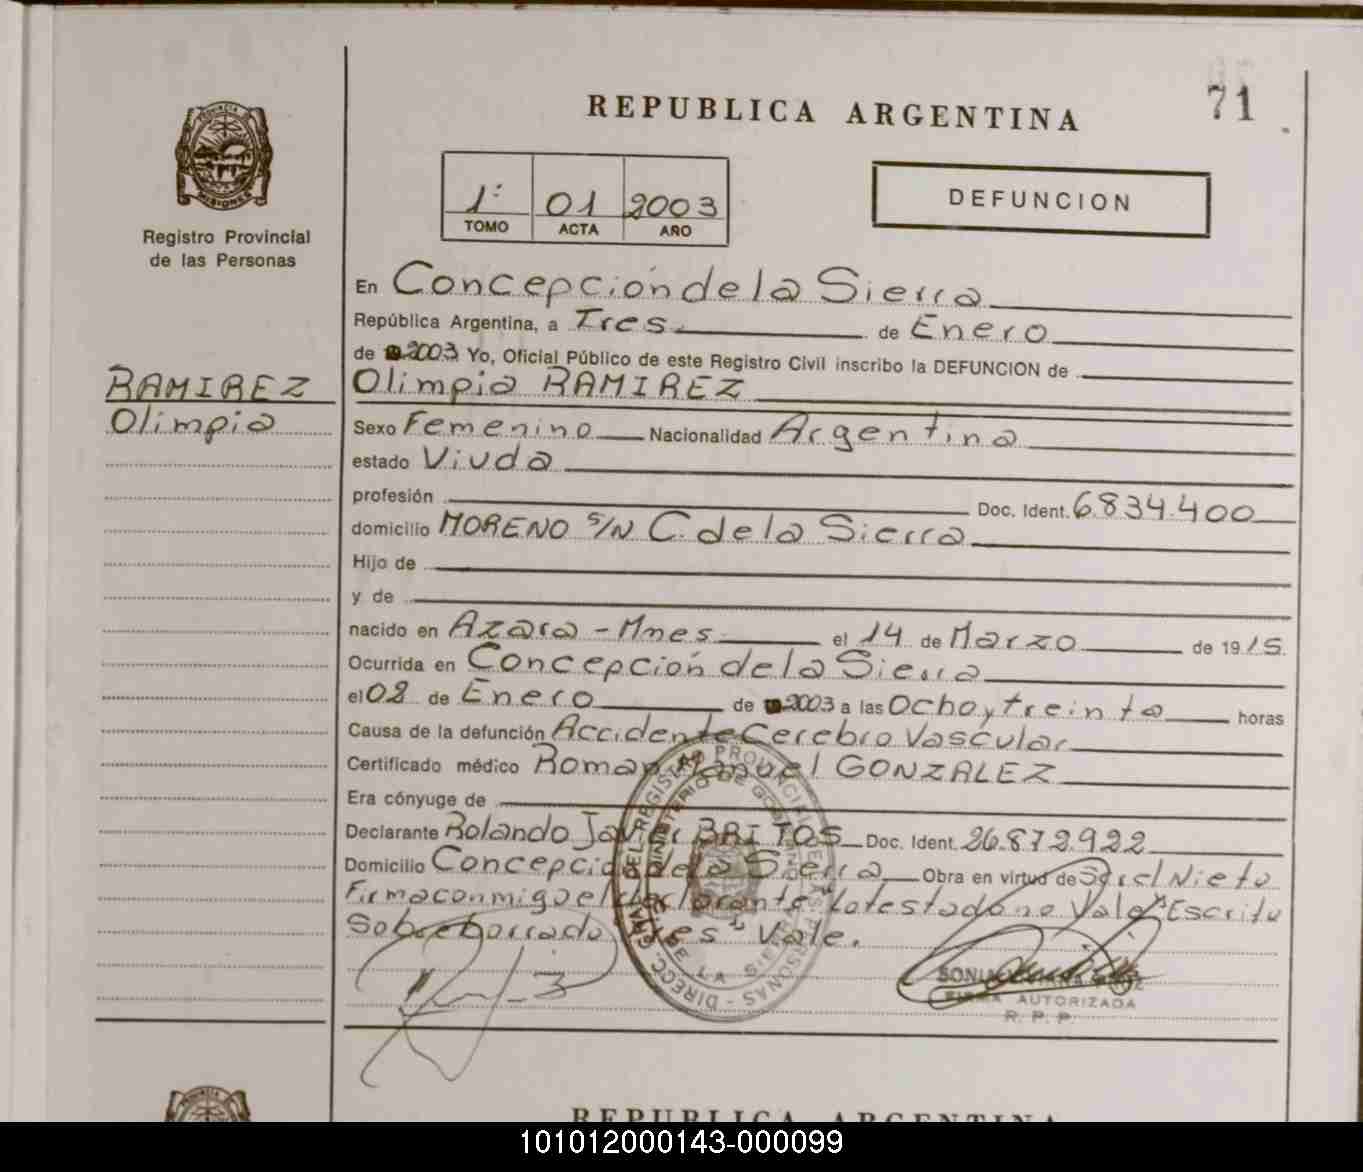 71
REPUBLICA ARGENTINA
1º 01 2003
TOMO ACTA AÑO
DEFUNCION
PROVINCIA
MISIONES
Registro Provincial
de las Personas
RAMIREZ
Olimpia
En Concepción de la Sierra
República Argentina, a Tres. de Enero
de 2003 Yo, Oficial Público de este Registro Civil inscribo la DEFUNCION de
Olimpia RAMIREZ
Sexo Femenino Nacionalidad Argentina
estado Viuda
profesión Doc. Ident. 6.834.400
domicilio MORENO S/N C. de la Sierra
Hijo de
y de
nacido en Azara - Mnes. el 14 de Marzo de 1915.
Ocurrida en Concepción de la Sierra
el 02 de Enero de 2003 a las Ocho y treinta horas
Causa de la defunción Accidente Cerebro Vascular
Certificado médico Roman Manuel GONZALEZ
Era cónyuge de
Declarante Rolando Javier BRITOS Doc. Ident. 26.872.922
Domicilio Concepción de la Sierra Obra en virtud de Ser el Nieto
Firma conmigo el declarante. Lo testado no Vale. Escrito
Sobreborrado Tres Vale.
DIRECC. GRAL. DEL REGISTRO PROVINCIAL DE LAS PERSONAS
MINISTERIO DE GOBIERNO
DE LA SIERRA
SONIA
FIRMA AUTORIZADA
R. P. P.
REPUBLICA ARGENTINA
101012000143-000099